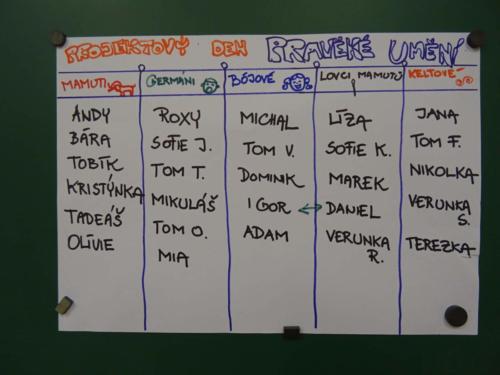 PROJEKTOVÝ DEN PRAVĚKÉ UMĚNÍ
MAMUTI GERMÁNI BÓJOVÉ LOVCI MAMUTŮ KELTOVÉ
ANDY ROXY MICHAL LÍZA JANA
BÁRA SOFIE J. TOM V. SOFIE K. TOM F.
TOBÍK TOM T. DOMINIK MAREK NIKOLKA
KRISTÝNKA MIKULÁŠ IGOR DANIEL VERUNKA S.
TADEÁŠ TOM O. ADAM VERUNKA R. TEREZKA
OLÍVIE MIA